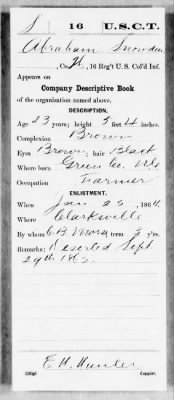 S 16 U.S.C.T.
Abraham Snowden
, Co. H, 16 Reg't U. S. Col'd Inf.
Appears on
Company Descriptive Book
of the organization named above.
DESCRIPTION.
Age 23 years; height 5 feet 4 inches.
Complexion Brown
Eyes Brown; hair Black
Where born Green Co.
Occupation Farmer
ENLISTMENT.
When Jan 25, 1864.
Where Clarksville
By whom C B Morse; term 3 y'rs.
Remarks: Deserted Sept
29th 1865.
E. W. Hunter
Copyist.